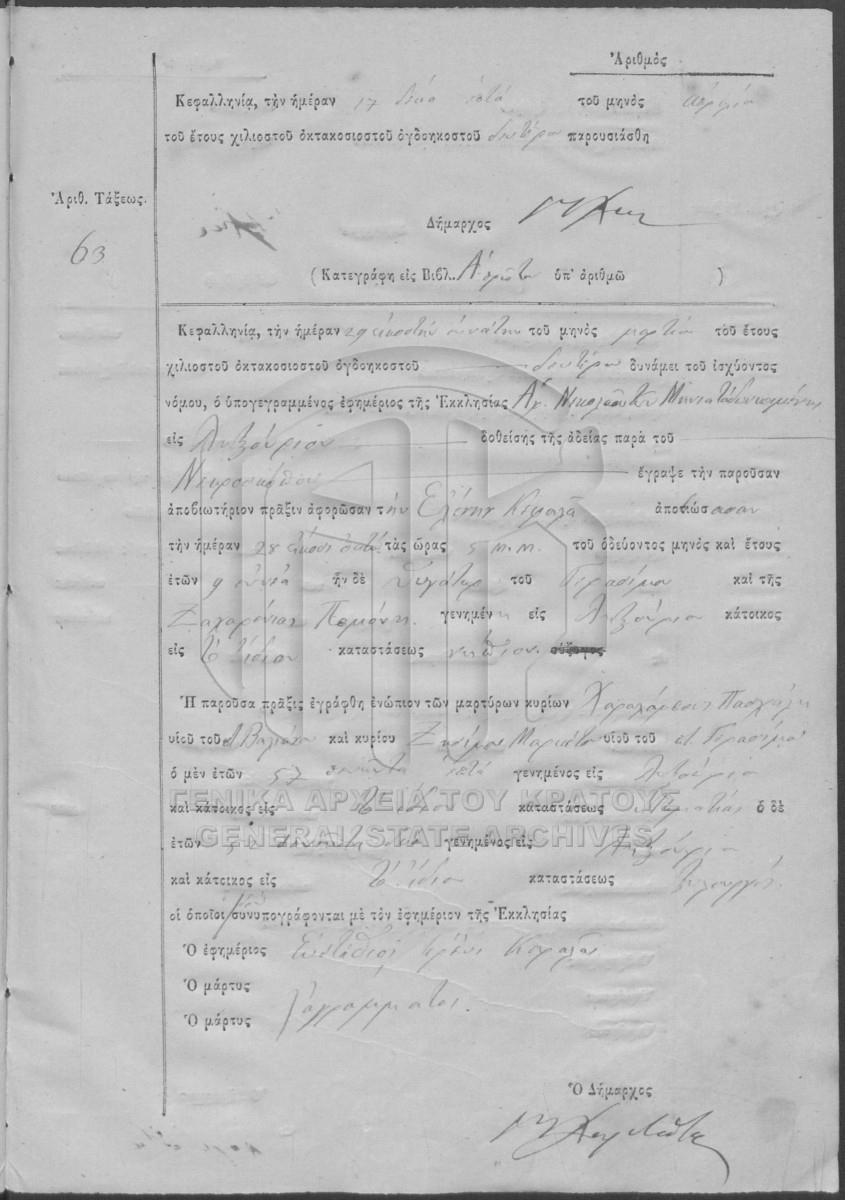 Ἀριθμὸς
Κεφαλληνίᾳ, τὴν ἡμέραν 17 δέκα ἑπτὰ τοῦ μηνὸς
τοῦ ἔτους χιλιοστοῦ ὀκτακοσιοστοῦ ὀγδοηκοστοῦ δευτέρου παρουσιάσθη
Ἀριθ. Τάξεως.
63
Δήμαρχος
( Κατεγράφη εἰς Βιβλ. Α πρῶτον ὑπ' ἀριθμῶ )
Κεφαλληνίᾳ, τὴν ἡμέραν 29 εἰκοστὴν ἐννάτην τοῦ μηνὸς μαρτίου τοῦ ἔτους
χιλιοστοῦ ὀκτακοσιοστοῦ ὀγδοηκοστοῦ δευτέρου δυνάμει τοῦ ἰσχύοντος
νόμου, ὁ ὑπογεγραμμένος ἐφημέριος τῆς Ἐκκλησίας Ἁγ. Νικολάου τῶν Μηνιατῶν
εἰς Ληξούριον δοθείσης τῆς ἀδείας παρὰ τοῦ
Νεκροσκόπου ἔγραψε τὴν παροῦσαν
ἀποβιωτήριον πρᾶξιν ἀφορῶσαν τὴν Ἑλένην Κεφαλᾶ ἀποβιώσασαν
τὴν ἡμέραν 28 εἰκοσι ὀκτὼ τὰς ὥρας 5 π.μ. τοῦ ὁδεύοντος μηνὸς καὶ ἔτους
ἐτῶν 9 ἐννέα ἦν δὲ θυγάτηρ τοῦ Γερασίμου καὶ τῆς
Ζαχαρούλας γενημένη εἰς Ληξούριον κάτοικος
εἰς τὸ ἴδιον καταστάσεως νήπιον σύζυγος
Ἡ παροῦσα πρᾶξις ἐγράφθη ἐνώπιον τῶν μαρτύρων κυρίων Χαραλάμπους Πασχάλη
υἱοῦ τοῦ καὶ κυρίου Ζησίμου υἱοῦ τοῦ Γερασίμου
ὁ μὲν ἐτῶν 57 πενῆντα ἑπτὰ γενημένος εἰς Ληξούριον
καὶ κάτοικος εἰς τὸ ἴδιον καταστάσεως ὁ δὲ
ἐτῶν γενημένος εἰς Ληξούριον
καὶ κάτοικος εἰς τὸ ἴδιον καταστάσεως ξυλουργὸς
οἱ ὁποῖοι συνυπογράφονται μὲ τὸν ἐφημέριον τῆς Ἐκκλησίας
Ὁ ἐφημέριος Εὐστάθιος ἱερεὺς Κεφαλᾶς
Ὁ μάρτυς
Ὁ μάρτυς ἀγράμματοι
Ὁ Δήμαρχος
ΓΕΝΙΚΑ ΑΡΧΕΙΑ ΤΟΥ ΚΡΑΤΟΥΣ
GENERAL STATE ARCHIVES